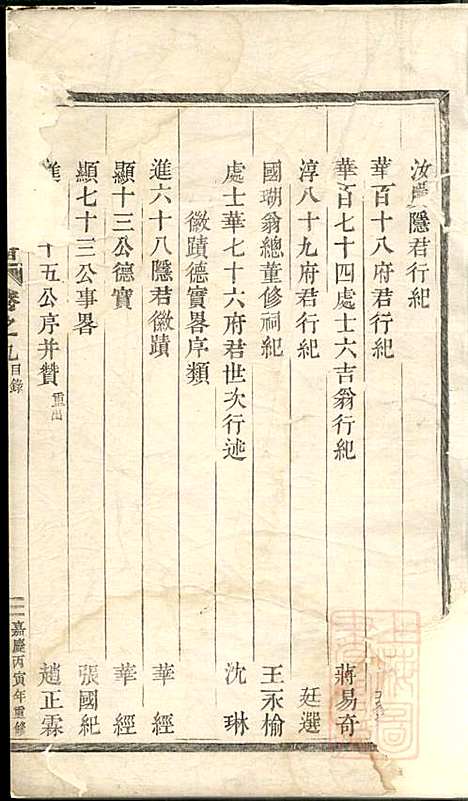 汝慶隱君行紀
華百十八府君行紀
華百七十四處士六吉翁行紀 蔣易奇
淳八十九府君行紀 廷選
國瑚翁總董修祠紀 王永榆
處士華七十六府君世次行述 沈琳
徽蹟德實畧序類
進六十八隱君徽蹟 華經
顯十三公德實 華經
顯七十三公事畧 張國紀
進 十五公序并贊 重出 趙正霖
卷之九 目錄 三 嘉慶丙寅年重修
上海圖書